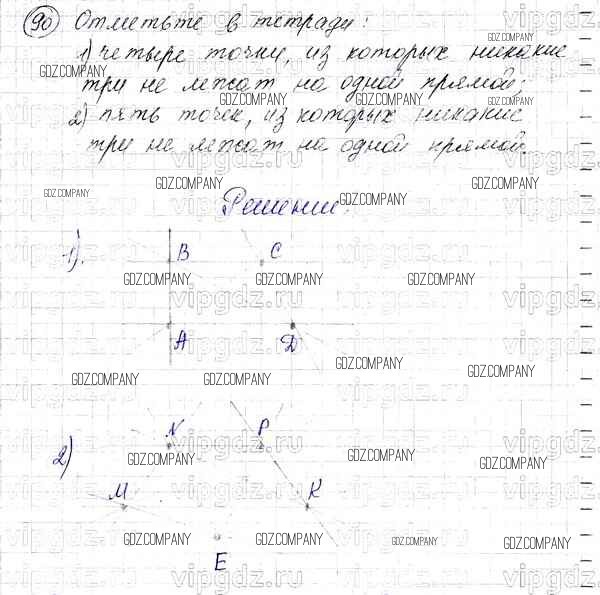 90 Отметьте в тетради:
1) четыре точки, из которых никакие
GDZ.COMPANY GDZ.COMPANY GDZ.COMPANY
три не лежат на одной прямой;
GDZ.COMPANY GDZ.COMPANY GDZ.COMPANY
2) пять точек, из которых никакие
три не лежат на одной прямой.
vipgdz.ru vipgdz.ru vipgdz.ru
GDZ.COMPANY GDZ.COMPANY GDZ.COMPANY GDZ.COMPANY
Решение.
1). B C
GDZ.COMPANY GDZ.COMPANY GDZ.COMPANY
vipgdz.ru vipgdz.ru vipgdz.ru
A D
GDZ.COMPANY GDZ.COMPANY GDZ.COMPANY
N P
vipgdz.ru vipgdz.ru vipgdz.ru
2) GDZ.COMPANY GDZ.COMPANY GDZ.COMPANY
M K
vipgdz.ru vipgdz.ru vipgdz.ru
GDZ.COMPANY GDZ.COMPANY GDZ.COMPANY GDZ.COMPANY
E
vipgdz.ru vipgdz.ru vipgdz.ru